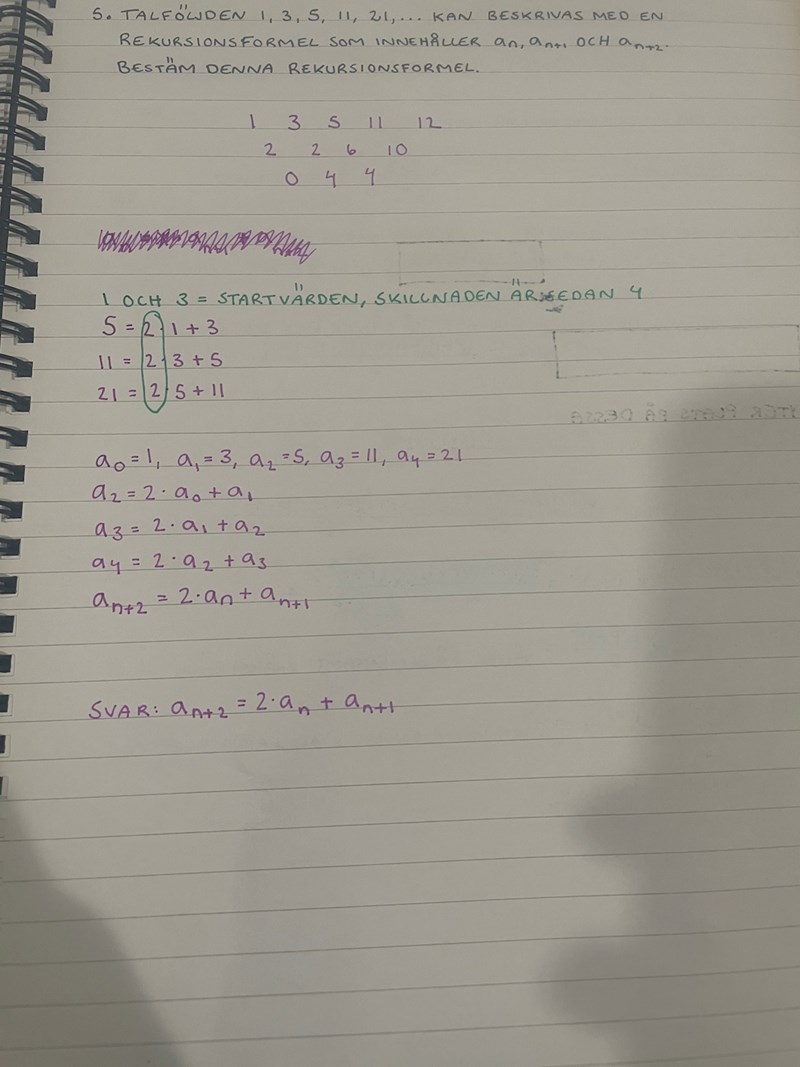 5. TALFÖLJDEN 1, 3, 5, 11, 21,... KAN BESKRIVAS MED EN
REKURSIONSFORMEL SOM INNEHÅLLER an, an+1 OCH an+2.
BESTÄM DENNA REKURSIONSFORMEL.
1 3 5 11 12
2 2 6 10
0 4 4
1 OCH 3 = STARTVÄRDEN, SKILLNADEN ÄR SEDAN 4
5 = 2·1 + 3
11 = 2·3 + 5
21 = 2·5 + 11
a₀ = 1, a₁ = 3, a₂ = 5, a₃ = 11, a₄ = 21
a₂ = 2·a₀ + a₁
a₃ = 2·a₁ + a₂
a₄ = 2·a₂ + a₃
aₙ₊₂ = 2·aₙ + aₙ₊₁
SVAR: aₙ₊₂ = 2·aₙ + aₙ₊₁